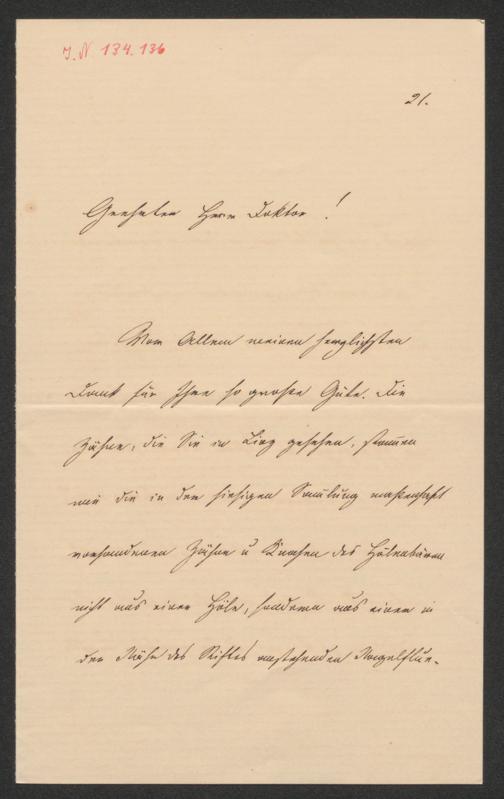 J. N. 134.136
21.
Geehrter Herr Doktor!
Vor Allem meinen herzlichsten
Dank für Ihre so große Güte. Die
Zähne, die Sie in Linz gesehen, stammen
wie die in der hiesigen Samlung massenhaft
vorhandenen Zähne u Knochen des Hölenbären
nicht aus einer Höle, sondern aus einem in
der Nähe des Stiftes anstehenden Nagelflue-